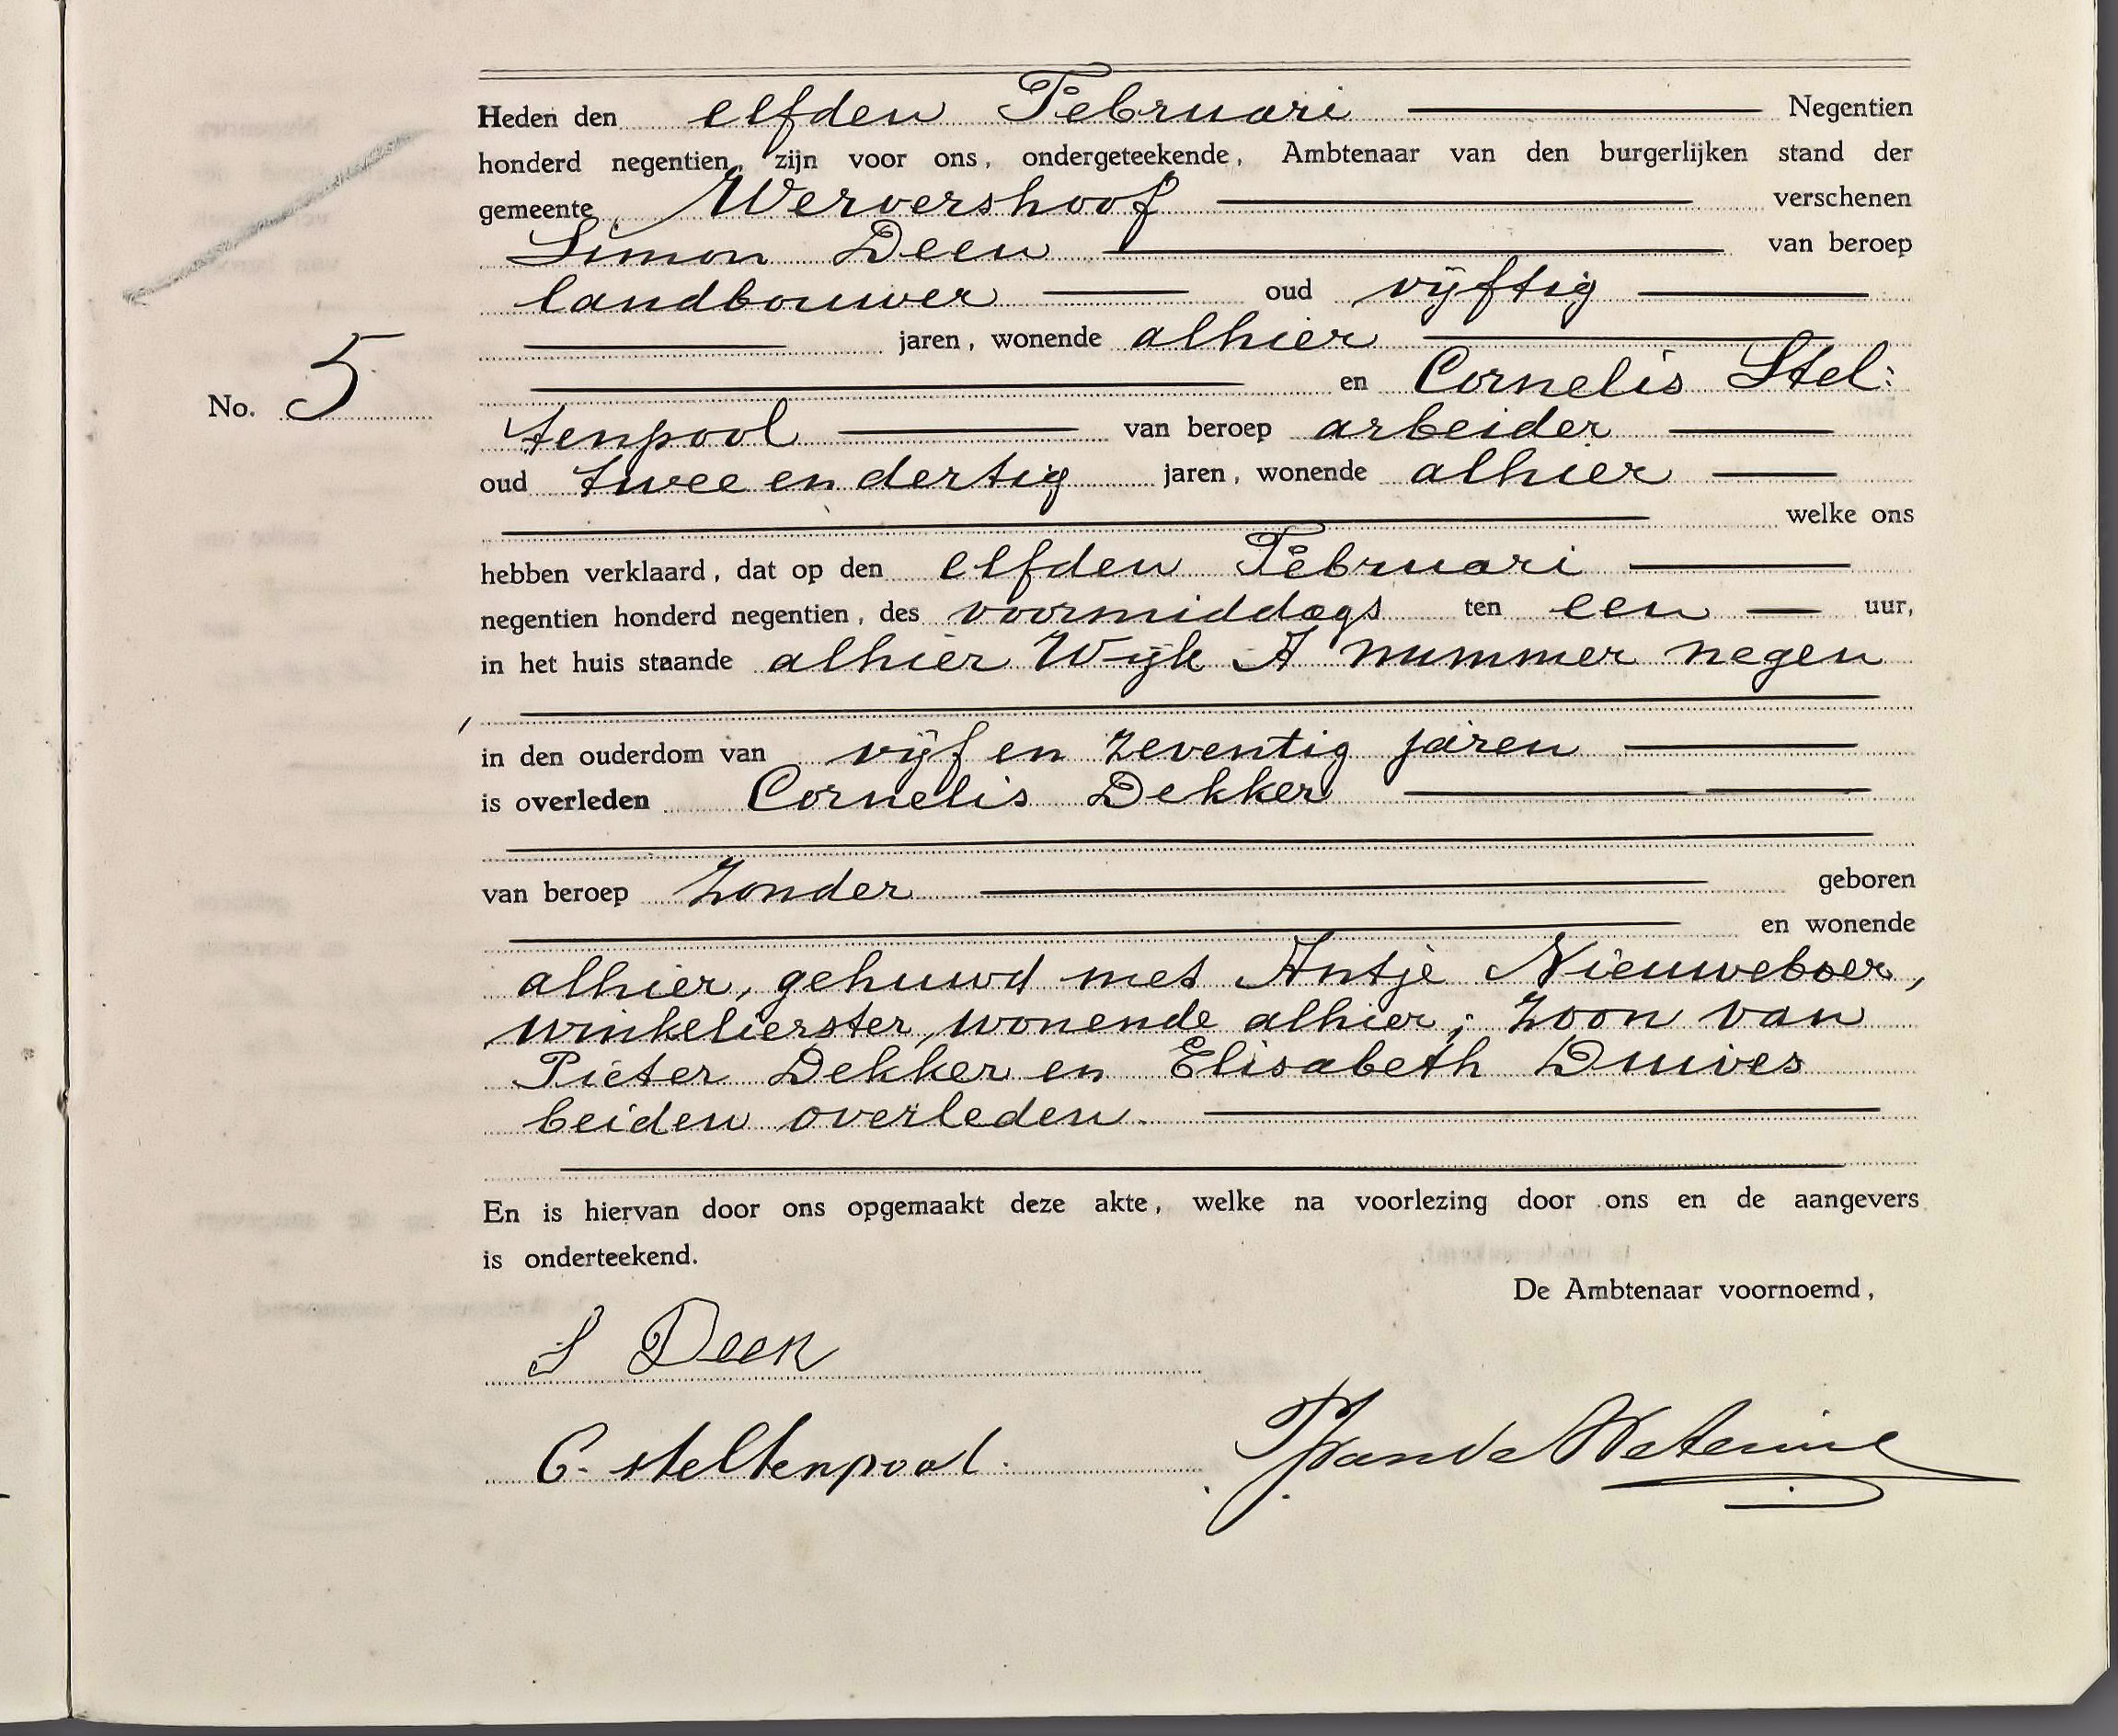 Heden den elfden Februari Negentien
honderd negentien, zijn voor ons, ondergeteekende, Ambtenaar van den burgerlijken stand der
gemeente Wervershoof verschenen
Simon Deen van beroep
landbouwer oud vijftig
jaren, wonende alhier
en Cornelis Stel:
No. 5
tenpool van beroep arbeider
oud twee en dertig jaren, wonende alhier
welke ons
hebben verklaard, dat op den elfden Februari
negentien honderd negentien, des voormiddags ten een uur,
in het huis staande alhier Wijk A nummer negen
in den ouderdom van vijf en zeventig jaren
is overleden Cornelis Dekker
van beroep zonder geboren
en wonende
alhier, gehuwd met Antje Nieuweboer,
winkelierster, wonende alhier; zoon van
Pieter Dekker en Elisabeth Duives
beiden overleden.
En is hiervan door ons opgemaakt deze akte, welke na voorlezing door ons en de aangevers
is onderteekend.
De Ambtenaar voornoemd,
S Deen
C. Steltenpool.